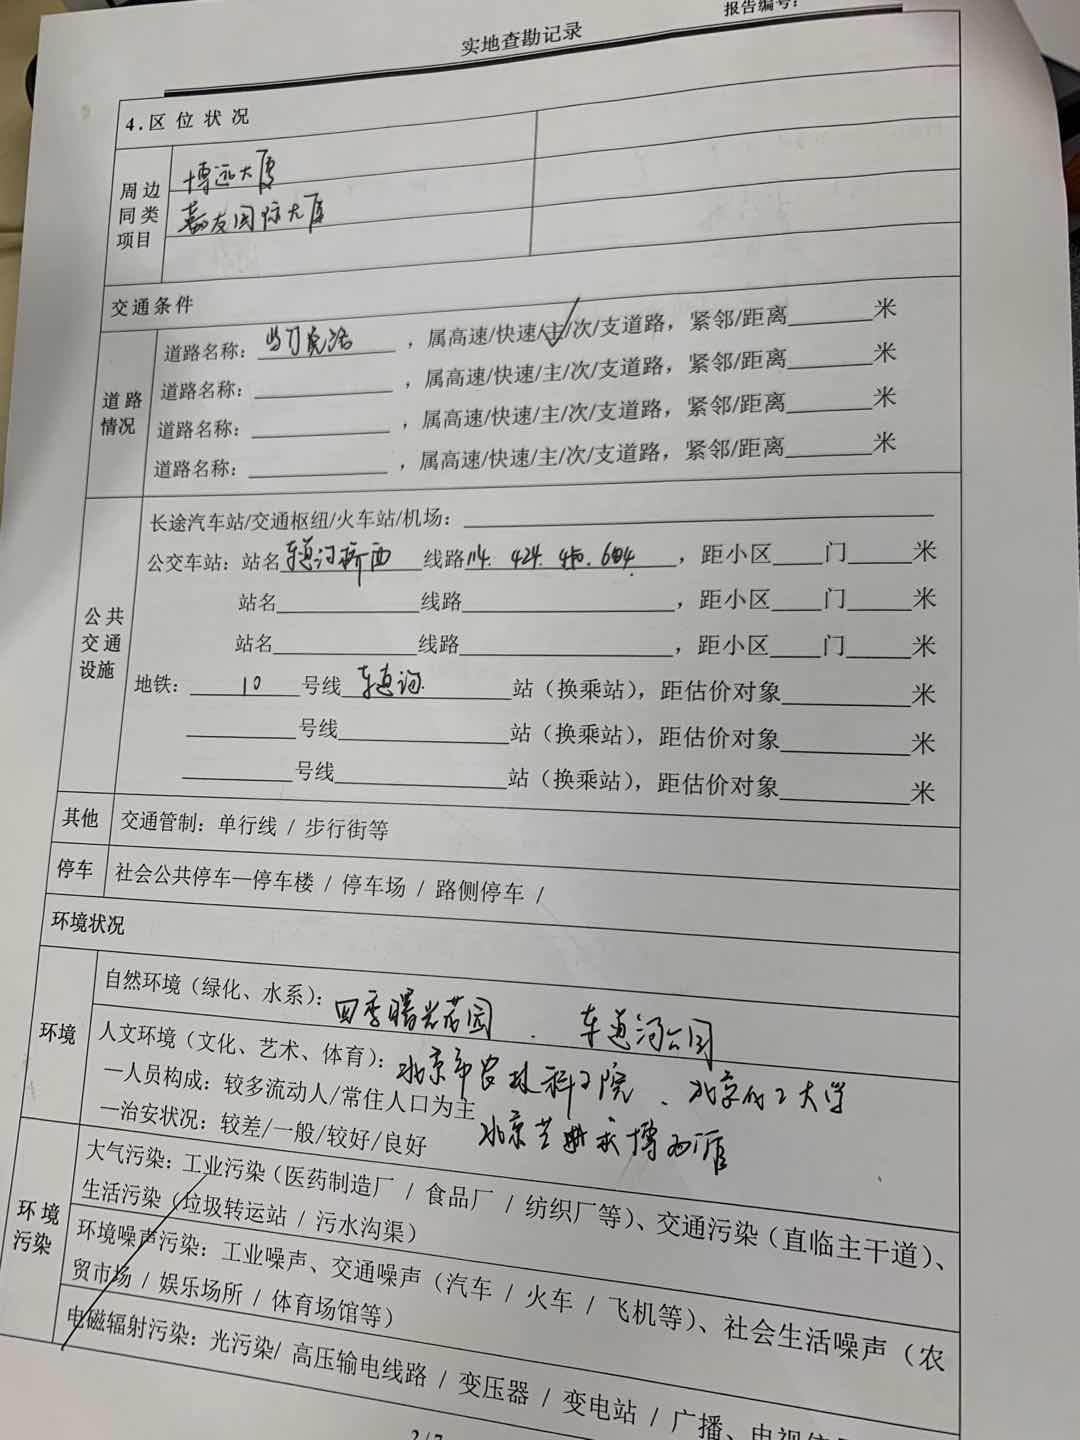 报告编号：
实地查勘记录
4.区位状况
周边同类项目
博远大厦
嘉友国际大厦
交通条件
道路情况
道路名称：，属高速/快速/主/次/支道路，紧邻/距离______米
道路名称：__________，属高速/快速/主/次/支道路，紧邻/距离______米
道路名称：__________，属高速/快速/主/次/支道路，紧邻/距离______米
道路名称：__________，属高速/快速/主/次/支道路，紧邻/距离______米
公共交通设施
长途汽车站/交通枢纽/火车站/机场：__________
公交车站：站名车道沟桥西 线路114. 424. ，距小区____门____米
站名__________线路__________，距小区____门____米
站名__________线路__________，距小区____门____米
地铁：10号线车道沟站（换乘站），距估价对象______米
______号线__________站（换乘站），距估价对象______米
______号线__________站（换乘站），距估价对象______米
其他 交通管制：单行线 / 步行街等
停车 社会公共停车—停车楼 / 停车场 / 路侧停车 /
环境状况
环境
自然环境（绿化、水系）：四季曙光花园 、 车道沟公园
人文环境（文化、艺术、体育）：北京市农林科学院 、 北京化工大学
—人员构成：较多流动人/常住人口为主
—治安状况：较差/一般/较好/良好 北京艺术博物馆
环境污染
大气污染：工业污染（医药制造厂 / 食品厂 / 纺织厂等）、交通污染（直临主干道）、
生活污染（垃圾转运站 / 污水沟渠）
环境噪声污染：工业噪声、交通噪声（汽车 / 火车 / 飞机等）、社会生活噪声（农
贸市场 / 娱乐场所 / 体育场馆等）
电磁辐射污染：光污染/ 高压输电线路 / 变压器 / 变电站 / 广播、电视
2/7